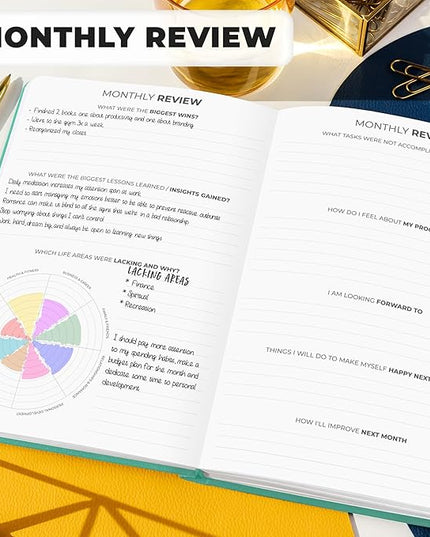 MONTHLY REVIEW
MONTHLY REVIEW
WHAT WERE THE BIGGEST WINS?
- Finished 2 books one about productivity and one about branding
- Went to the gym 3x a week
- Reorganized my closet
WHAT WERE THE BIGGEST LESSONS LEARNED / INSIGHTS GAINED?
Daily meditation increases my attention span at work
I need to start managing my emotions better to be able to prevent reactive outbursts
Romance can make us blind to all the signs that we're in a bad relationship
Stop worrying about things I can't control
Work hard, dream big, and always be open to learning new things
WHICH LIFE AREAS WERE LACKING AND WHY?
LACKING AREAS
* Finance
* Spiritual
* Recreation
HEALTH & FITNESS
BUSINESS & CAREER
FAMILY & FRIENDS
PERSONAL DEVELOPMENT
I should pay more attention
to my spending habits, make a
budget plan for the month and
dedicate some time to personal
development
MONTHLY REV
WHAT TASKS WERE NOT ACCOMPL
HOW DO I FEEL ABOUT MY PROG
I AM LOOKING FORWARD TO
THINGS I WILL DO TO MAKE MYSELF HAPPY NEXT
HOW I'LL IMPROVE NEXT MONTH